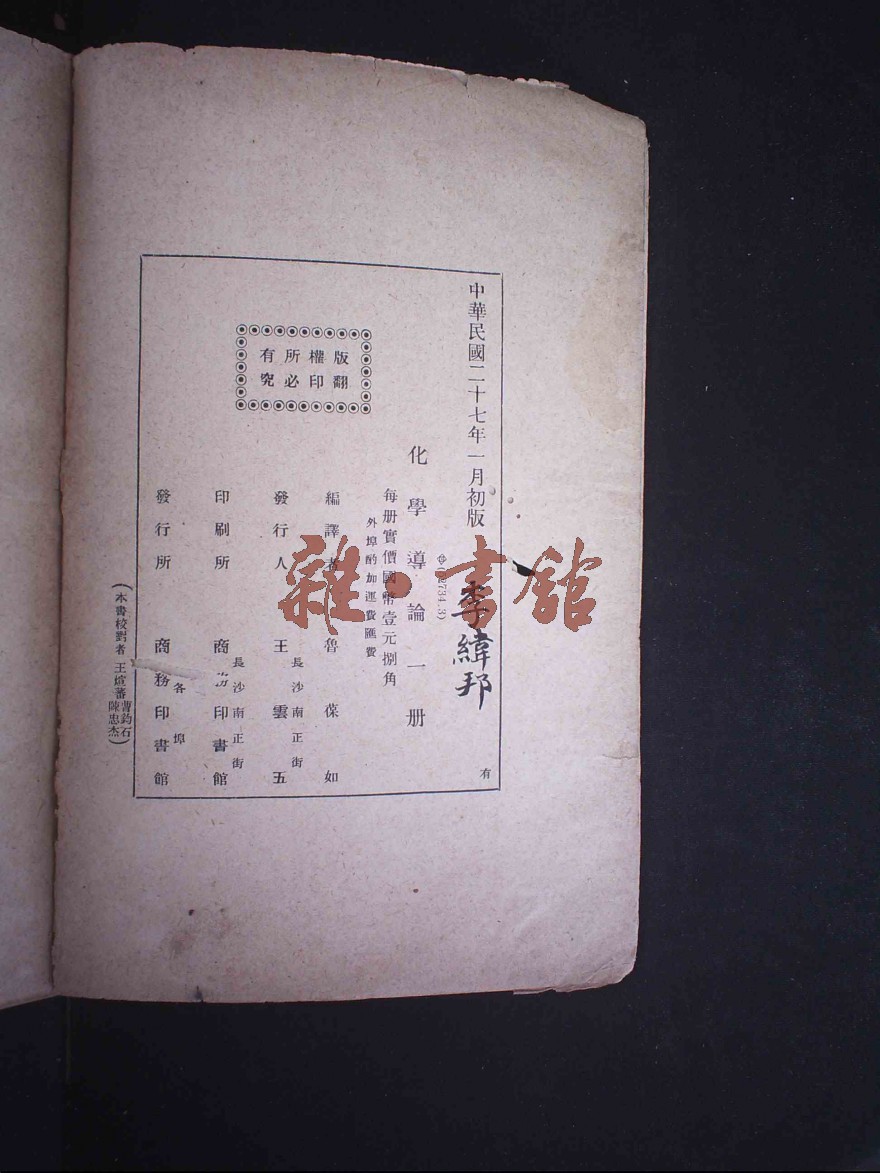 中華民國二十七年一月初版
2734.3)
李緯邦
有
化學導論一册
每册實價國幣壹元捌角
外埠酌加運費匯費
版權所有
翻印必究
編譯者 魯葆如
發行人 王雲五
長沙南正街
印刷所 商務印書館
長沙南正街
發行所 商務印書館
各埠
(本書校對者 王煊蕃 曹鈞石 陳忠杰)
雜·書館